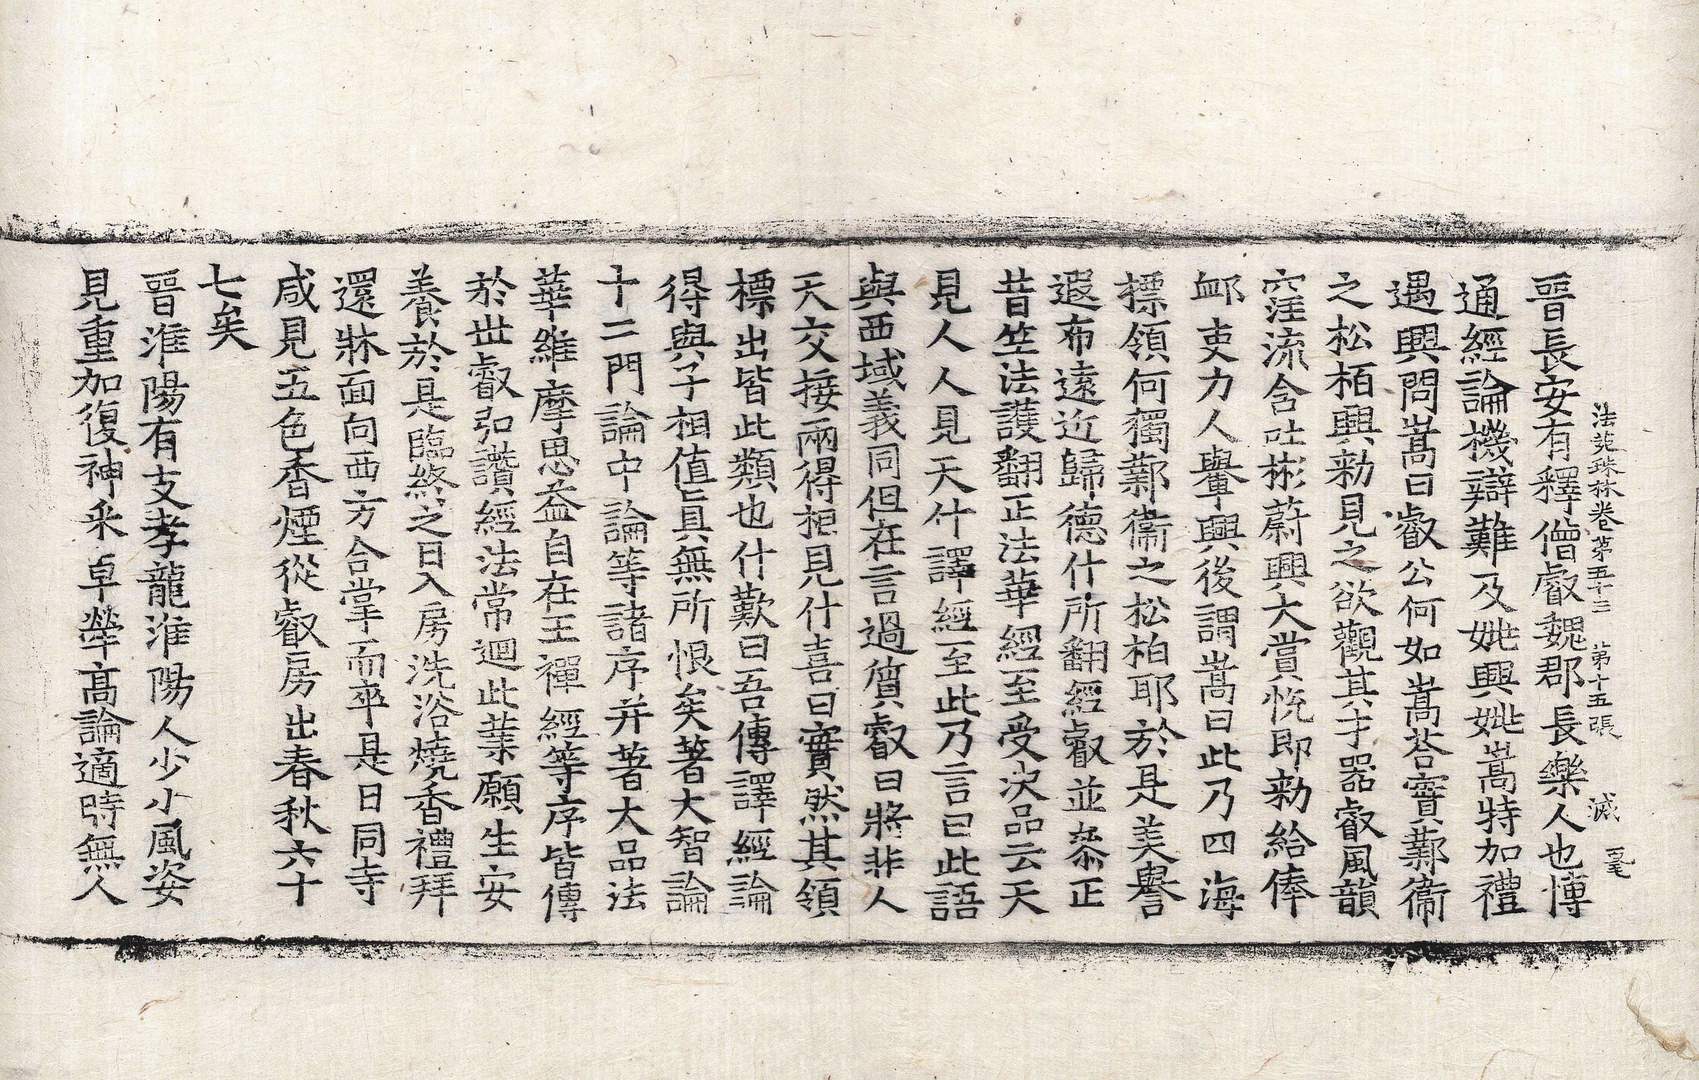 法苑珠林卷第五十三 第十五張 滅
晉長安有釋僧叡魏郡長樂人也博
通經論機辯難及姚興姚嵩特加禮
遇興問嵩曰叡公何如嵩荅實鄴衛
之松栢興勑見之欲觀其才器叡風韻
窪流含吐彬蔚興大賞恱即勑給俸
卹吏力人轝興後謂嵩曰此乃四海
摽領何獨鄴衞之松柏耶於是美譽
遐布遠近歸德什所翻經叡並叅正
昔竺法護翻正法華經至受決品云天
見人人見天什譯經至此乃言曰此語
與西域義同但在言過質叡曰將非人
天交接兩得相見什喜曰實然其領
標出皆此類也什歎曰吾傳譯經論
得與子相值真無所恨矣著大智論
十二門論中論等諸序并著大品法
華維摩思益自在王禪經等序皆傳
於世叡弘讚經法常迴此業願生安
養於是臨終之日入房洗浴燒香禮拜
還牀面向西方合掌而卒是日同寺
咸見五色香煙從叡房出春秋六十
七矣
晉淮陽有支孝龍淮陽人少小風姿
見重加復神彩卓犖高論適時無人